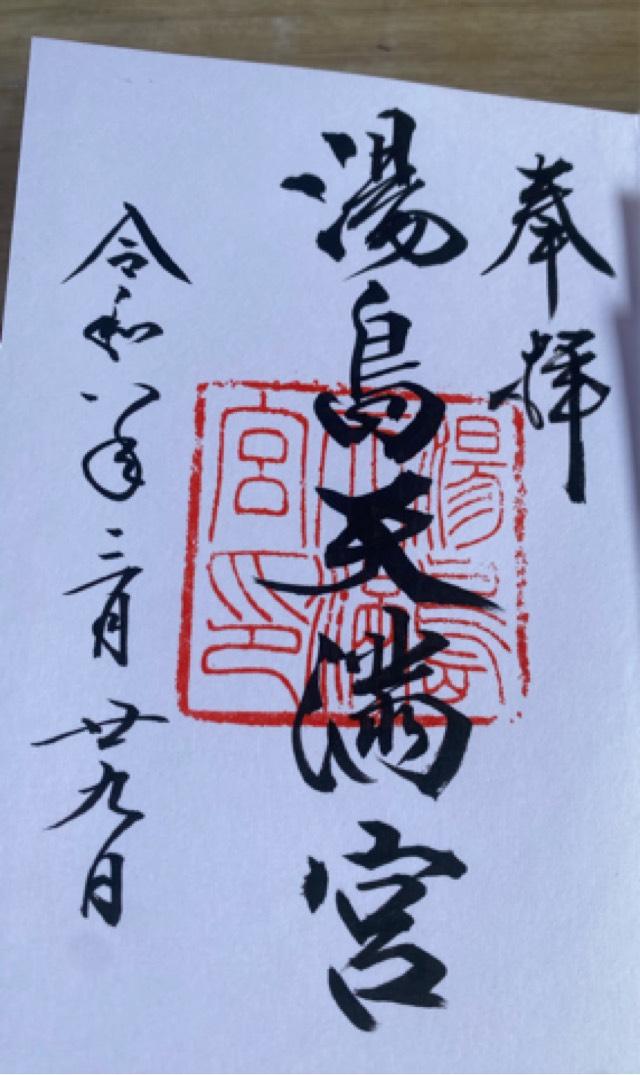 奉拝
湯島天満宮
令和八年三月廿九日
湯島
天満
宮印